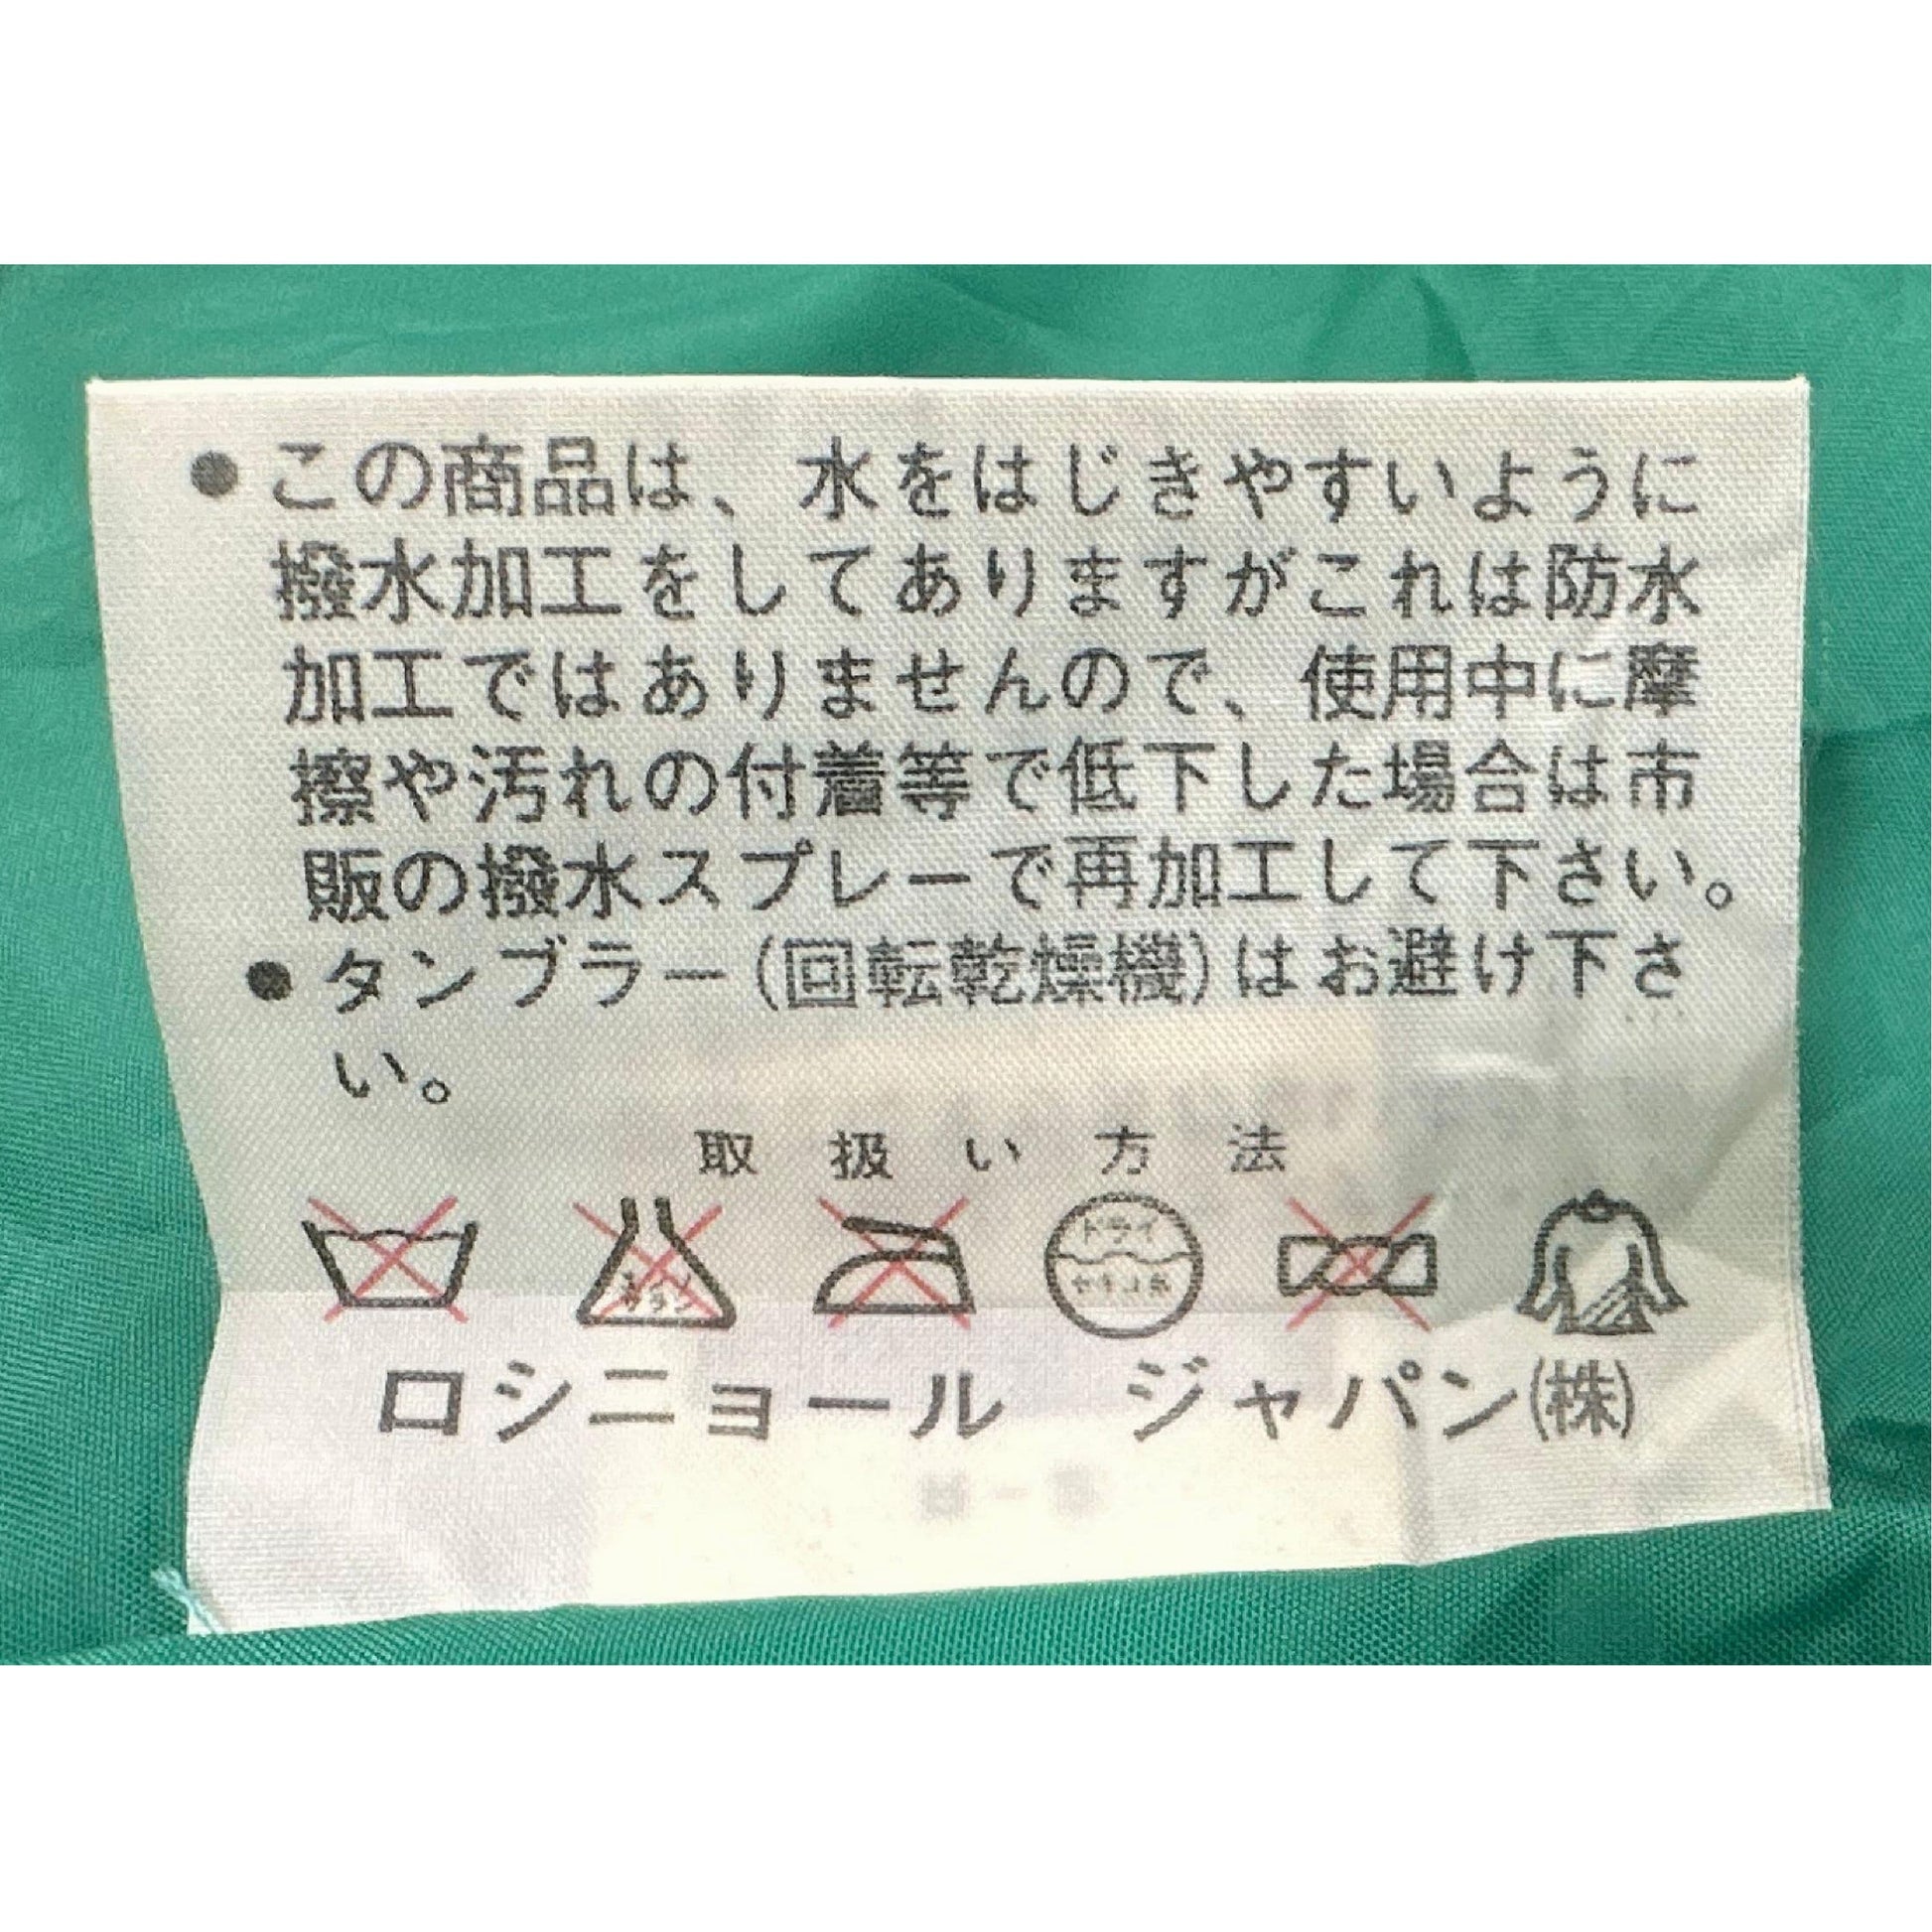 ●この商品は、水をはじきやすいように
撥水加工をしてありますがこれは防水
加工ではありませんので、使用中に摩
擦や汚れの付着等で低下した場合は市
販の撥水スプレーで再加工して下さい。
●タンブラー(回転乾燥機)はお避け下さ
い。
取扱い方法
エンソサラシ
ドライ
セキユ系
ロシニョール ジャパン(株)